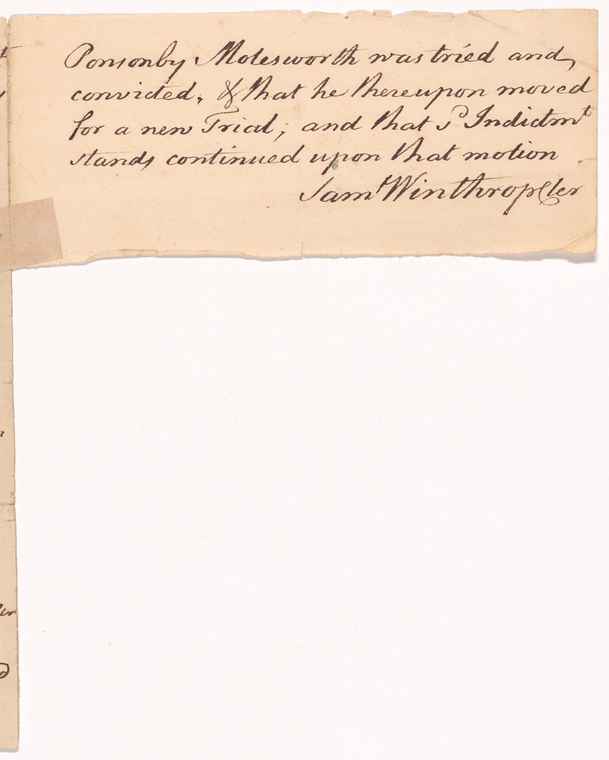 Ponsonby Molesworth was tried and
convicted, & that he thereupon moved
for a new Trial; and that sd Indictmt
stands continued upon that motion
Saml Winthrop Cler